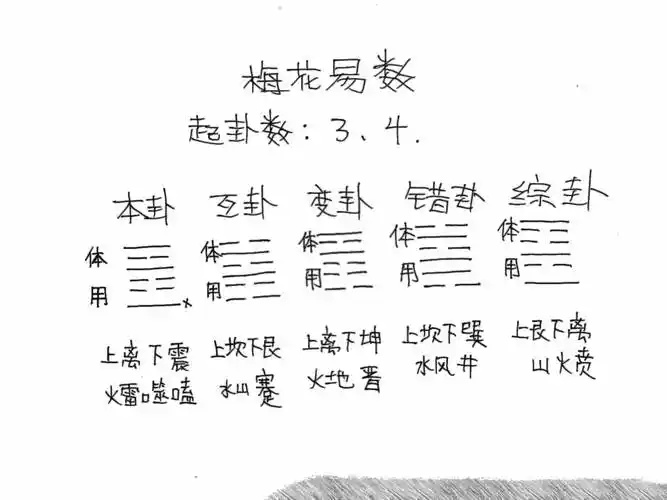 梅花易数
起卦数：3、4.
本卦 互卦 变卦 错卦 综卦
体 体 体 体 体
用 用 用 用 用
x
上离下震 上坎下艮 上离下坤 上坎下巽 上艮下离
火雷噬嗑 水山蹇 火地晋 水风井 山火贲